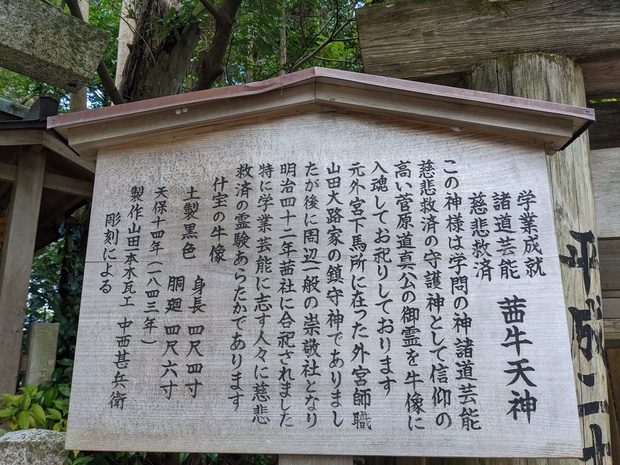 学業成就
諸道芸能
慈悲救済
茜牛天神
この神様は学問の神諸道芸能
慈悲救済の守護神として信仰の
高い菅原道真公の御霊を牛像に
入魂してお祀りしております
元外宮下馬所に在った外宮師職
山田大路家の鎮守神でありまし
たが後に周辺一般の崇敬社となり
明治四十二年茜社に合祀されました
特に学業芸能に志す人々に慈悲
救済の霊験あらたかであります
什宝の牛像
土製黒色 身長 四尺四寸
胴廻 四尺六寸
天保十四年(一八四三年)
製作山田一本木瓦工 中西甚兵衛
彫刻による
平成二十